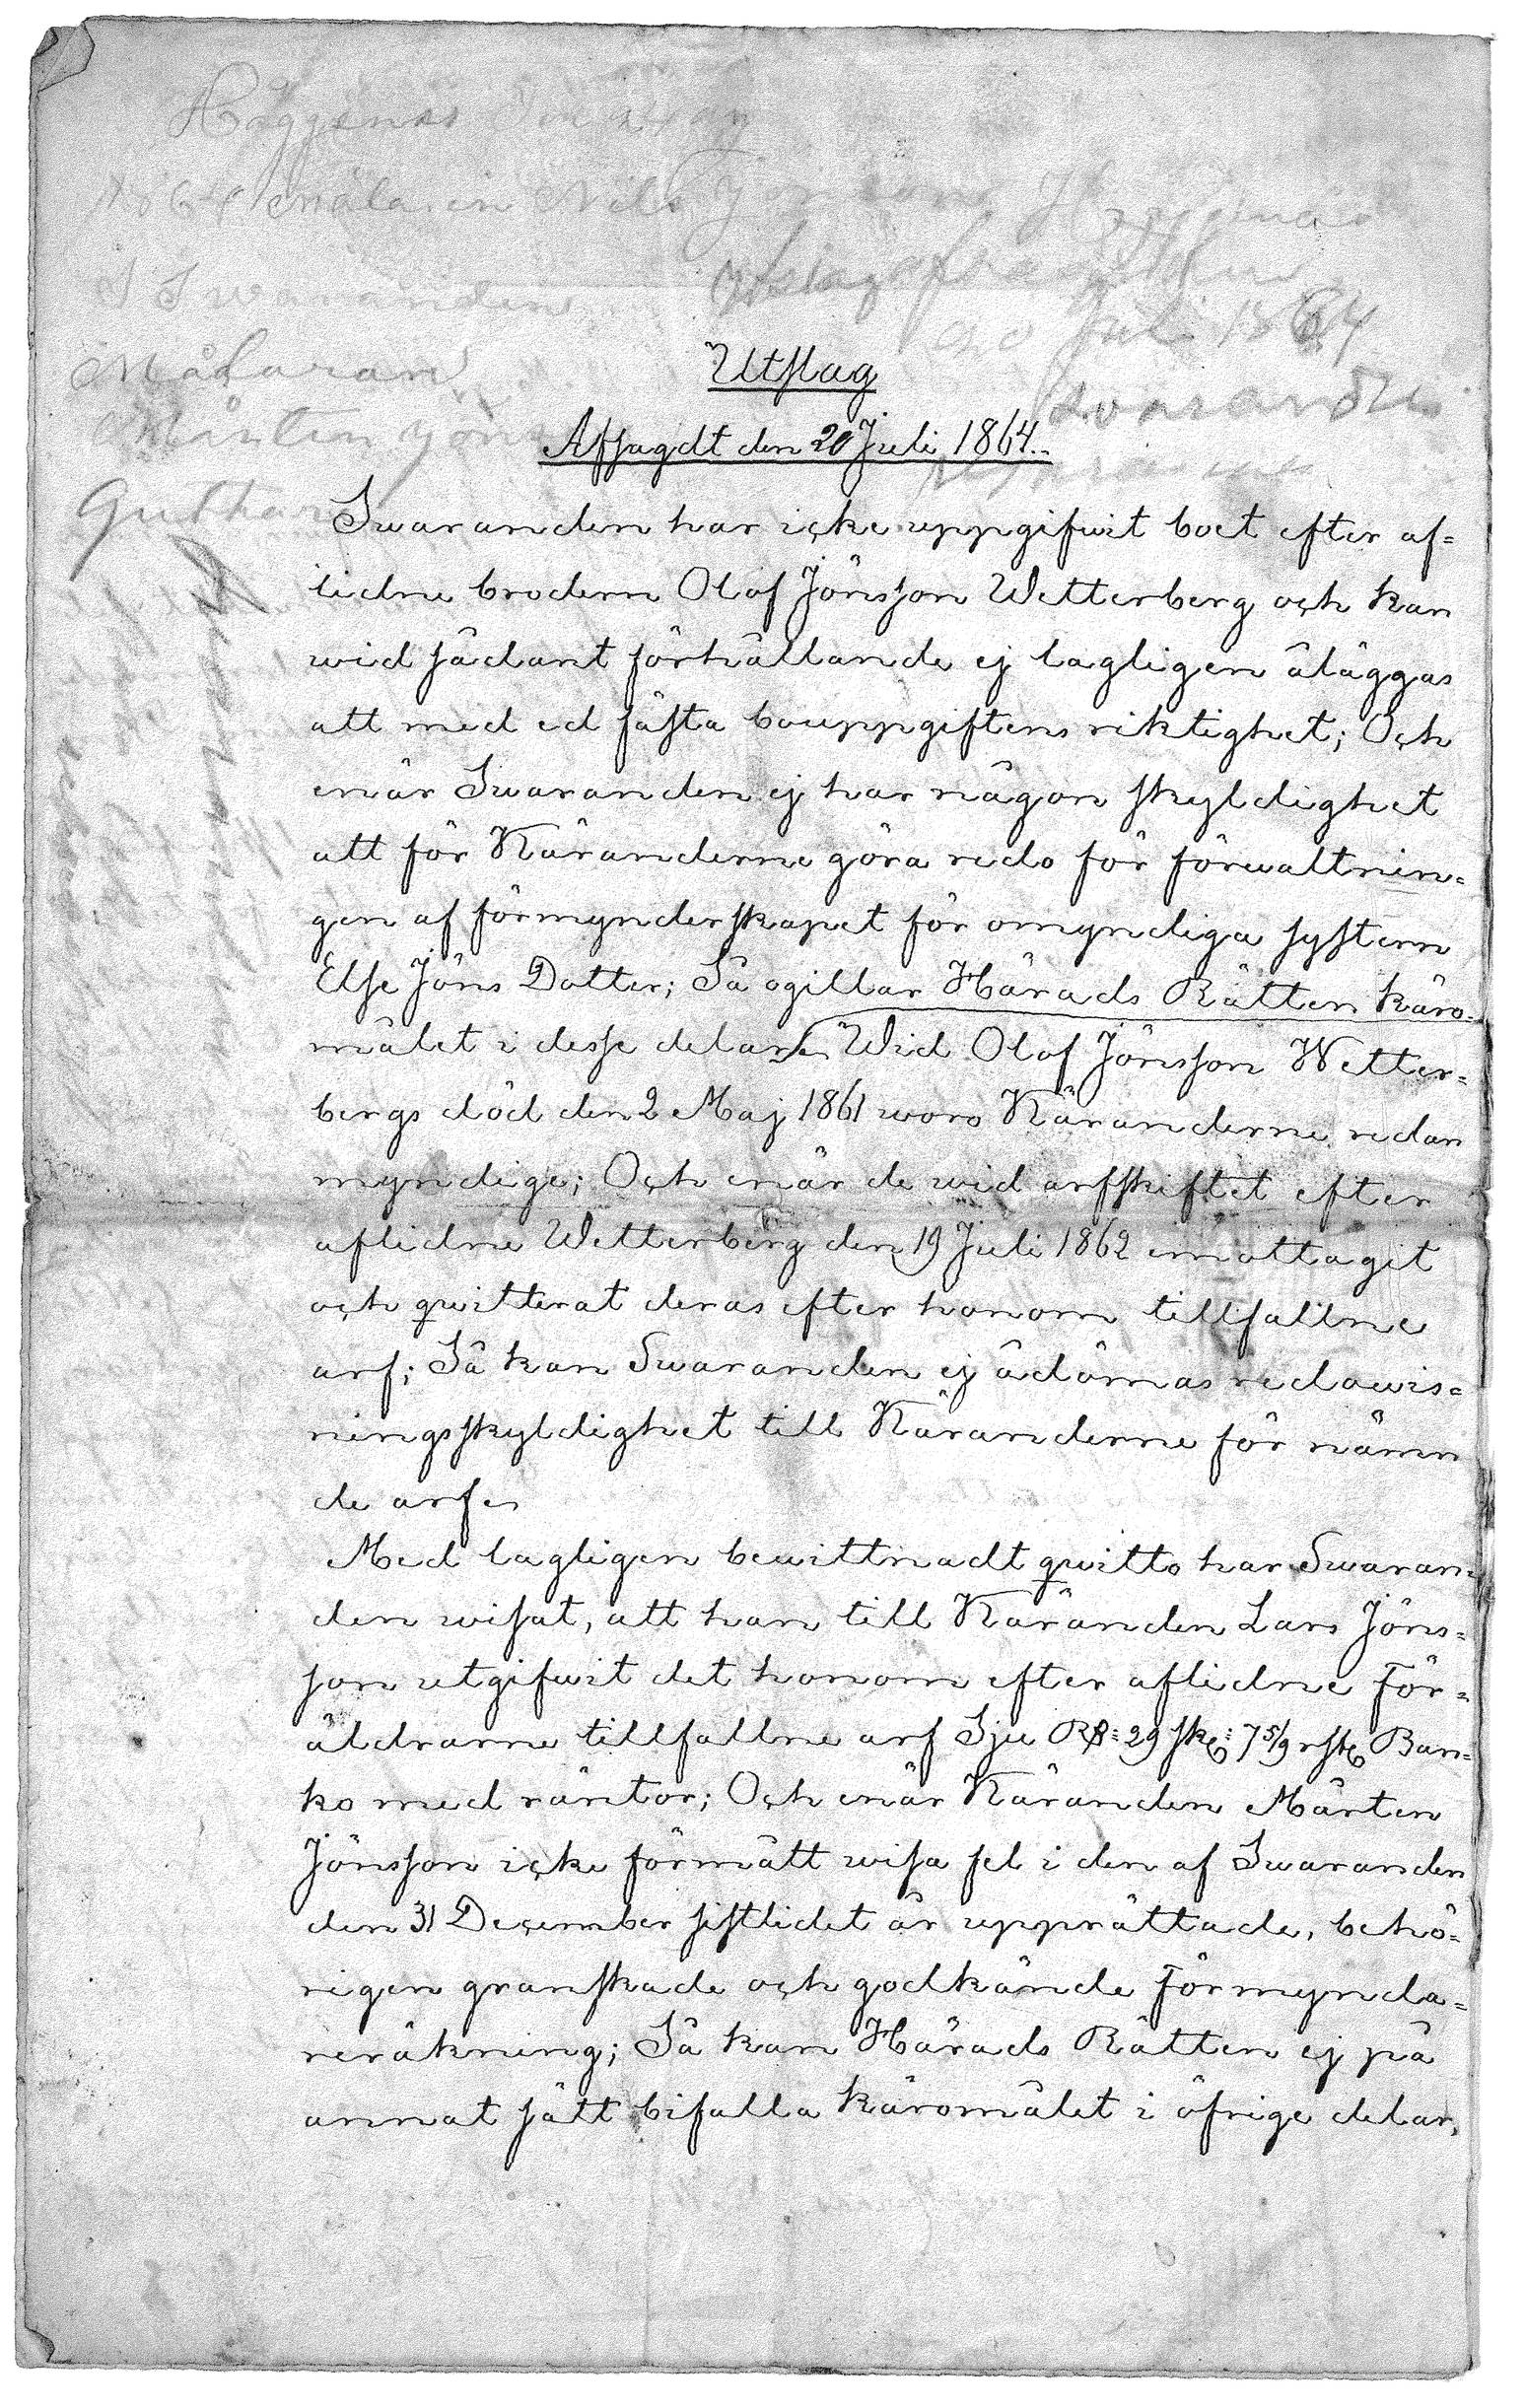 Häggenäs
1864 Nils Jönsson
Swaranden
20 Juli 1864
Målaren
Mårten Jöns
Utslag
Afsagdt den 20 Juli 1864.
Swaranden har icke uppgifwit boet efter af=
lidne brodern Olof Jönsson Wetterberg och kan
wid sådant förhållande ej lagligen åläggas
att med ed fästa bouppgiftens riktighet; Och
enär Swaranden ej har någon skyldighet
att för Käranderne göra redo för förwaltnin=
gen af förmynderskapet för omyndiga systern
Else Jöns Dotter; Så ogillar Härads Rätten käro=
målet i desse delar. Wid Olof Jönsson Wetter=
bergs död den 2 Maj 1861 woro Käranderne redan
myndige; Och enär de wid arfskiftet efter
aflidne Wetterberg den 19 Juli 1862 emottagit
och qwitterat deras efter honom tillfallne
arf; Så kan Swaranden ej ådömas redowis=
ningsskyldighet till Käranderne för nämn
de arf.
Med lagligen bewittnadt qwitto har Swaran=
den wisat, att han till Käranden Lars Jöns=
son utgifwit det honom efter aflidne För=
äldrarne tillfallne arf Sju Rd= 29 sk: 7 5/9 rst Ban=
ko med räntor; Och enär Käranden Mårten
Jönsson icke förmått wisa fel i den af Swaranden
den 31 December sistlidet år upprättade, behö=
rigen granskade och godkände Förmynda=
reräkning; Så kan Härads Rätten ej på
annat sätt bifalla käromålet i öfrige delar,